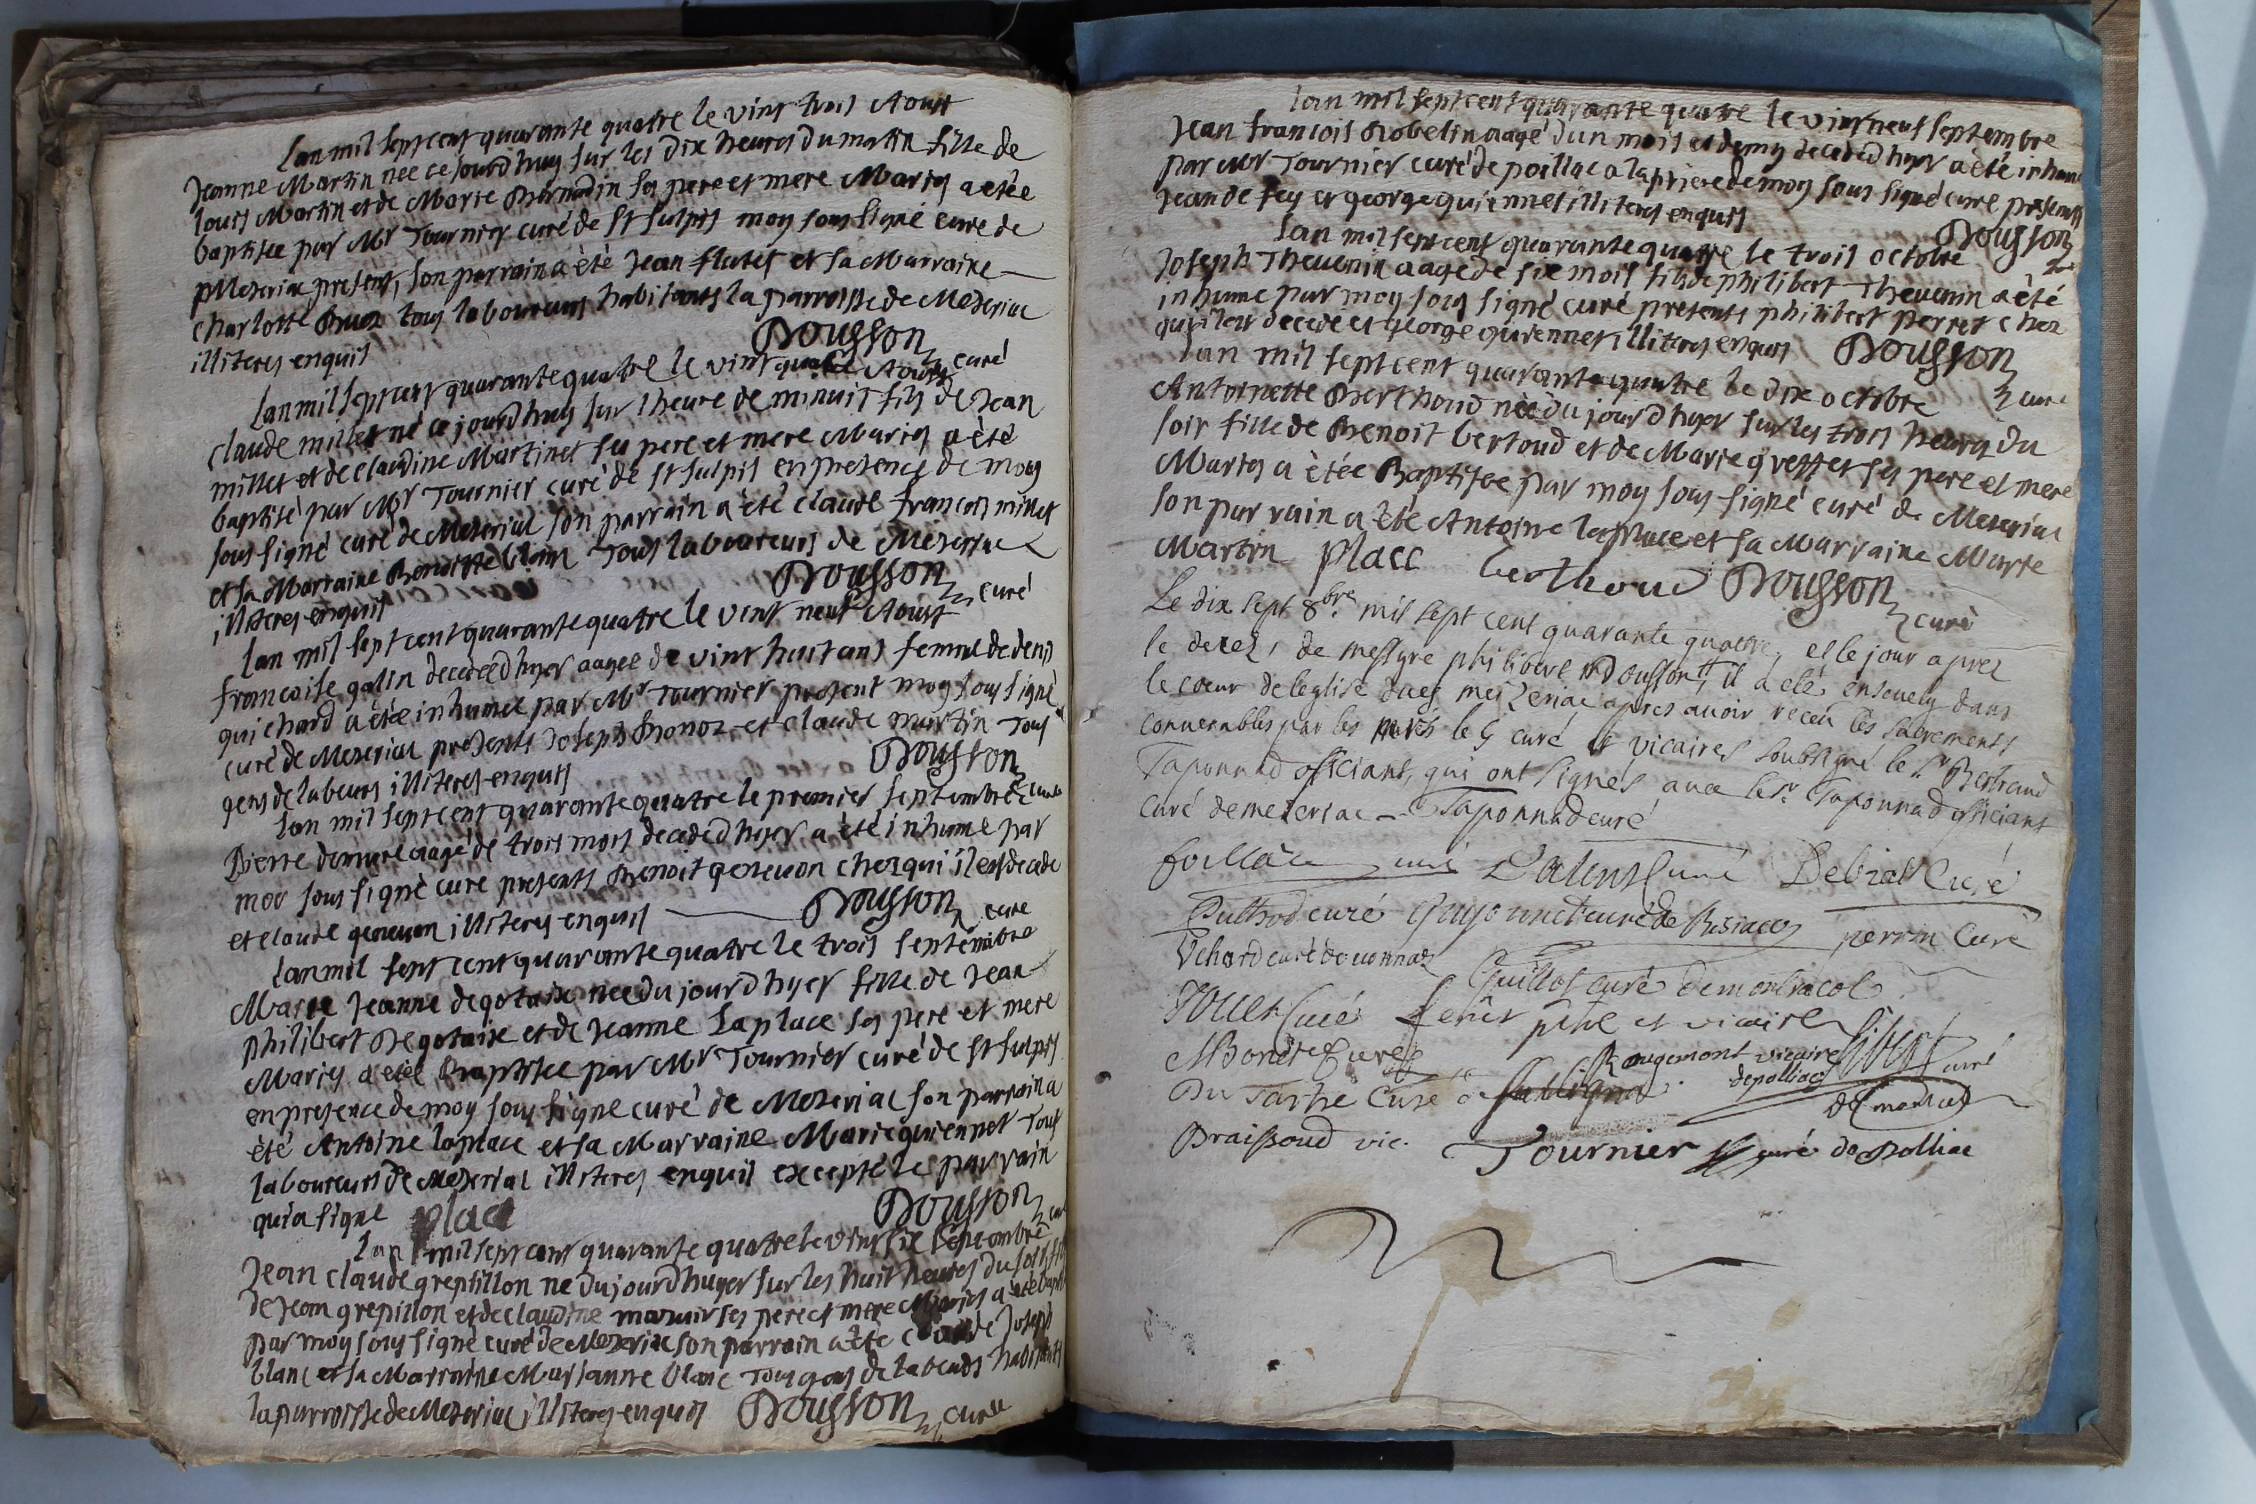 Lan mil sept cent quarante quatre le vint trois Aoust
Jeanne Martin née ce jourdhuy sur les dix heures du matin fille de
louis Martin et de Marie Bernadin ses pere et mere Mariés a etée
baptisée par Mr Tournier curé de st sulpis moy sous signé curé de
Mezeriac present, son parrain a été Jean flutet et sa Marraine
charlotte tous laboureurs habitants la parroisse de Mezeriac
illiteres enquis Dousson curé
Lan mil sept cent quarante quatre le vint quatre Aoust
claude millet né ce jourdhuy sur lheure de minuit fils de Jean
millet et de claudine Martinet ses pere et mere Mariés a été
baptisé par Mr Tournier curé de st sulpis en presence de moy
sous signé curé de Mezeriac son parrain a été claude francois millet
et sa Marraine Benoitte blanc Tous laboureurs de Mezeriac
illiteres enquis Dousson curé
Lan mil sept cent quarante quatre le vint neuf Aoust
francoise galin decedée dhyer aagee de vint huit ans femme de denis
guichard a étée inhumée par Mr Tournier present moy sous signé
curé de Mezeriac presents Joseph Bonoz et claude martin Tous
gens de labeurs illiteres enquis Dousson curé
Lan mil sept cent quarante quatre le premier septembre
Pierre demure aagé de trois mois decedé dhyer a été inhumé par
moy sous signé curé presents Benoit genevon chez qui il est decedé
et claude genevon illiteres enquis Dousson curé
Lan mil sept cent quarante quatre le trois septembre
Marie Jeanne degotaix née du jourdhyer fille de Jean
philibert Degotaix et de Jeanne Laplace ses pere et mere
Mariés a étée Baptisée par Mr Tournier curé de st sulpis
en presence de moy sous signe curé de Mezeriac son parrain a
été Antoine laplace et sa Marraine Marie quiennet Tous
laboureurs de Mezeriac illiteres enquis excepté le parrain
qui a signe place Dousson curé
Lan mil sept cent quarante quatre le vint six septembre
Jean claude grepillon ne du jourdhuyer sur les huit heures du soir fils
de Jean grepillon et de claudine ses pere et mere Mariés a été baptisé
par moy sous signé curé de Mezeriac son parrain a été claude Joseph
blanc et sa Marraine Marianne blanc Tous gens de labeurs habitants
la parroisse de Mezeriac illiteres enquis Dousson curé
Lan mil sept cent quarante quatre le vint neuf septembre
Jean francois Robelin aagé dun mois et demy decedé dhyer a été inhumé
par Mr Tournier curé de poillac a la priere de moy sous signé curé presents
Jean de fey et george quiennet illiteres enquis Dousson
Lan mil sept cent quarante quatre le trois octobre
Joseph Thevenin aagé de six mois fils de philibert Thevenin a été
inhumé par moy sous signé curé presents philibert perret chez
qui il est decedé et george quiennet illiteres enquis Dousson curé
Lan mil sept cent quarante quatre le dix octobre
Antoinette Berthoud née du jourdhyer sur les trois heures du
soir fille de Benoit bertoud et de Marie greffet ses pere et mere
Mariés a étée Baptisée par moy sous signé curé de Mezeriac
son parrain a été Antoine laplace et sa Marraine Marie
Martin place berthoud Dousson curé
Le dix sept 8bre mil sept cent quarante quattre, et le jour apres
le decez, de messyre philibert Dousson, il a eté ensevely dans
le coeur de leglise dud mezeriac apres avoir receu les sacrements
convenables par les curé et vicaires soubsigné le sr Bertrand
Taponnad officiant, qui ont signés avec le sr Taponnad officiant
curé de mezeriac - Taponnad curé
curé curé Debiat Curé
Puthod curé curé de perrin Curé
Vehard curé de vonnas Guillot curé de montracol
curé ptre et vicaire
Monet Curé Rougemont vicaire de polliac curé
Du Tartre Curé
Braissoud vic. Tournier curé de Polliac